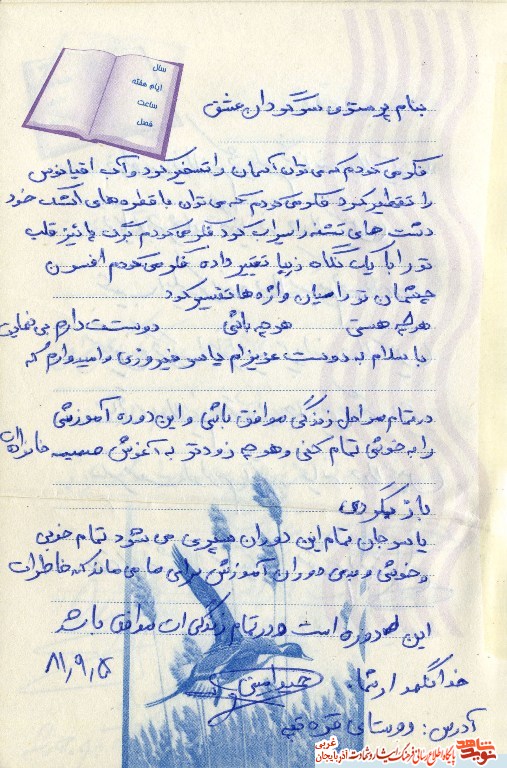 سال
ایام هفته
ساعت
فصل
بنام پرستوی سرگردان عشق
فکر می کردم که می توان آسمان را تسخیر کرد و آب اقیانوس
را تقطیر کرد فکر می کردم که می توان با قطره های اشک خود
دشت های تشنه را سیراب کرد فکر می کردم پائیز قلب
تو را با یک نگاه زیبا تغییر داده فکر می کردم افسون
چشمان تو را میان واژه ها تفسیر کرد
هر که هستی هر چه باشی دوستت دارم
با سلام به دوست عزیزم یاسر فیروزی و امیدوارم که
در تمام مراحل زندگی موافق باشی و این دوره آموزشی
را به خوشی تمام کنی و هر چه زودتر به آغوش خانواده
باز گردی
یاسر جان تمام این دوران سپری می شود تمام خوبی
و خوشی و بدی دوران آموزش برای ما می ماند که خاطرات
این دوره است و در تمام زندگی ات موافق باشد
خدانگهدار شما
۸۱٫۹٫۵
آدرس: روستای قره قیه
شاهد
نوید
پایگاه اطلاع رسانی فرهنگ ایثار و شهادت آذربایجان غربی